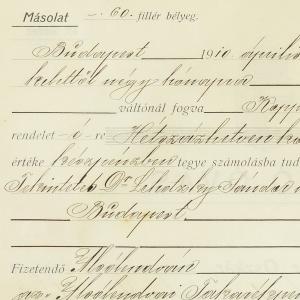 Másolat -. 60.- fillér bélyeg.
Budapest 1910. április
kelettől négy hónapra
váltónál fogva Kapp
rendelet -ó- re Hétszázhatvan ko
értéke készpénzben tegye számolásba tud
Tekintetes Dr Lehotzky Sándor
Budapest
Fizetendő Alsólendván
az Alsólendvai Takarékp